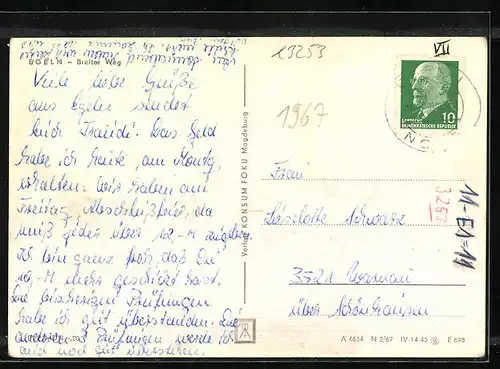 13253
VII
EGELN – Breiter Weg
1967
DEUTSCHE
DEMOKRATISCHE REPUBLIK
10
Viele liebe Grüße
aus Egeln sendet
Euch Traudi. Das Geld
habe ich heute, am Montag
erhalten. Wir haben am
Freitag Abschlußfeier, da
muß jeder über 12,-M
Ich bin ganz froh, daß Du
10-M mehr geschickt hast.
Die bisherigen Prüfungen
habe ich gut überstanden. Die
anderen 3 Prüfungen werde ich
auch noch gut überstehen.
Verlag KONSUM FOKU Magdeburg
Frau
Liselotte Schwarz
3521
über Schönhausen
3253
11-E1=14
A 6634 N 2/67 IV-14-45 E 698